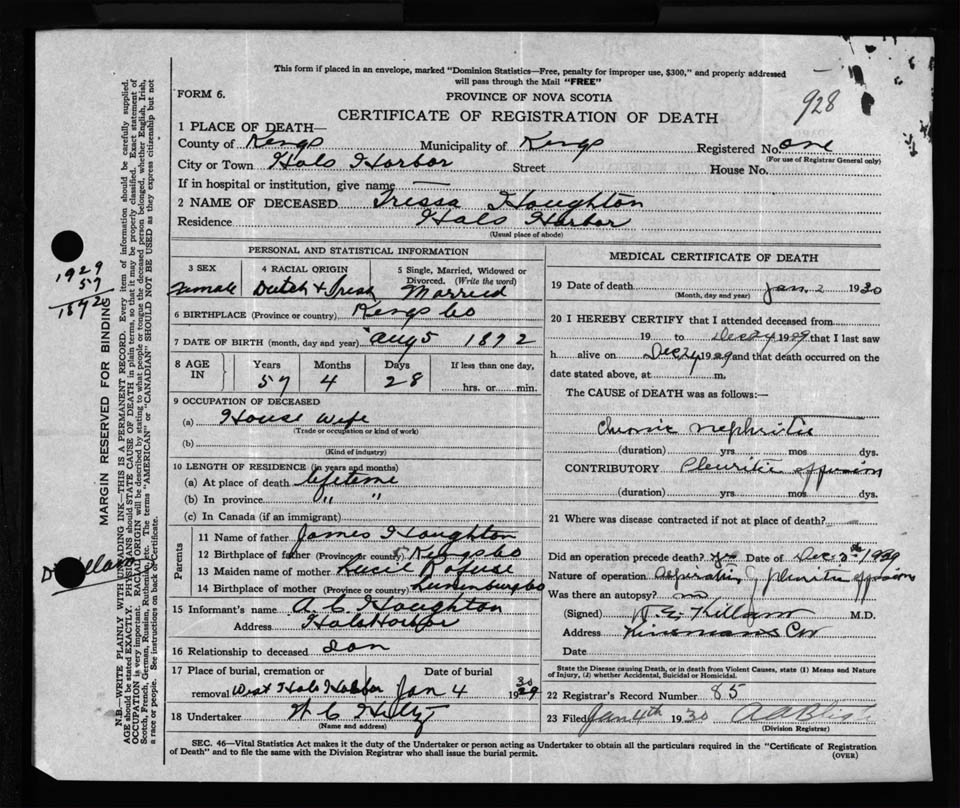 This form if placed in an envelope, marked "Dominion Statistics—Free, penalty for improper use, $300," and properly addressed
will pass through the Mail "FREE"
FORM 6.
PROVINCE OF NOVA SCOTIA
928
CERTIFICATE OF REGISTRATION OF DEATH
1 PLACE OF DEATH—
County of Kings Municipality of Kings Registered No. one
(For use of Registrar General only)
City or Town Hals Harbor Street House No.
If in hospital or institution, give name —
2 NAME OF DECEASED Tressa Houghton
Residence Hals Harbor
(Usual place of abode)
PERSONAL AND STATISTICAL INFORMATION
3 SEX 4 RACIAL ORIGIN 5 Single, Married, Widowed or Divorced. (Write the word)
Female Dutch & Irish Married
6 BIRTHPLACE (Province or country) Kings Co
7 DATE OF BIRTH (month, day and year) Aug 5 1872
8 AGE IN Years Months Days If less than one day,
57 4 28 hrs. or min.
9 OCCUPATION OF DECEASED
(a) House wife
(Trade or occupation or kind of work)
(b)
(Kind of industry)
10 LENGTH OF RESIDENCE (in years and months)
(a) At place of death lifetime
(b) In province " "
(c) In Canada (if an immigrant)
Parents
11 Name of father James Houghton
12 Birthplace of father (Province or country) Kings Co
13 Maiden name of mother Rafuse
14 Birthplace of mother (Province or country) Lunenburg Co
15 Informant's name A. C. Houghton
Address Hals Harbor
16 Relationship to deceased Son
17 Place of burial, cremation or removal West Hals Harbor Date of burial Jan 4 1929 30
18 Undertaker
(Name and address)
MEDICAL CERTIFICATE OF DEATH
19 Date of death Jan. 2 1930
(Month, day and year)
20 I HEREBY CERTIFY that I attended deceased from
19 to Dec 24 1929 that I last saw
h alive on Dec 24 1929 and that death occurred on the
date stated above, at m.
The CAUSE of DEATH was as follows:—
Chronic nephritis
(duration) yrs. mos. dys.
CONTRIBUTORY Pleuritic effusion
(duration) yrs. mos. dys.
21 Where was disease contracted if not at place of death?
Did an operation precede death? yes Date of Dec. 1929
Nature of operation Aspirating pleuritic effusion
Was there an autopsy? no
(Signed) Killam M.D.
Address Kinsmans Cor
Date
State the Disease causing Death, or in death from Violent Causes, state (1) Means and Nature
of Injury, (2) whether Accidental, Suicidal or Homicidal.
22 Registrar's Record Number 85
23 Filed Jan 4th 1930
(Division Registrar)
SEC. 46—Vital Statistics Act makes it the duty of the Undertaker or person acting as Undertaker to obtain all the particulars required in the "Certificate of Registration
of Death" and to file the same with the Division Registrar who shall issue the burial permit.
(OVER)
1929
57
1872
MARGIN RESERVED FOR BINDING
N.B.—WRITE PLAINLY WITH UNFADING INK—THIS IS A PERMANENT RECORD. Every item of information should be carefully supplied.
AGE should be stated EXACTLY. PHYSICIANS should STATE CAUSE OF DEATH in plain terms, so that it may be properly classified. Exact statement of
OCCUPATION is very important. RACIAL ORIGIN will be described by stating to what people or tongue the deceased person belonged, whether English, Irish,
Scotch, French, German, Russian, Ruthenian, Etc. The terms "AMERICAN" or "CANADIAN" SHOULD NOT BE USED as they express citizenship but not
a race or people. See instructions on back of Certificate.